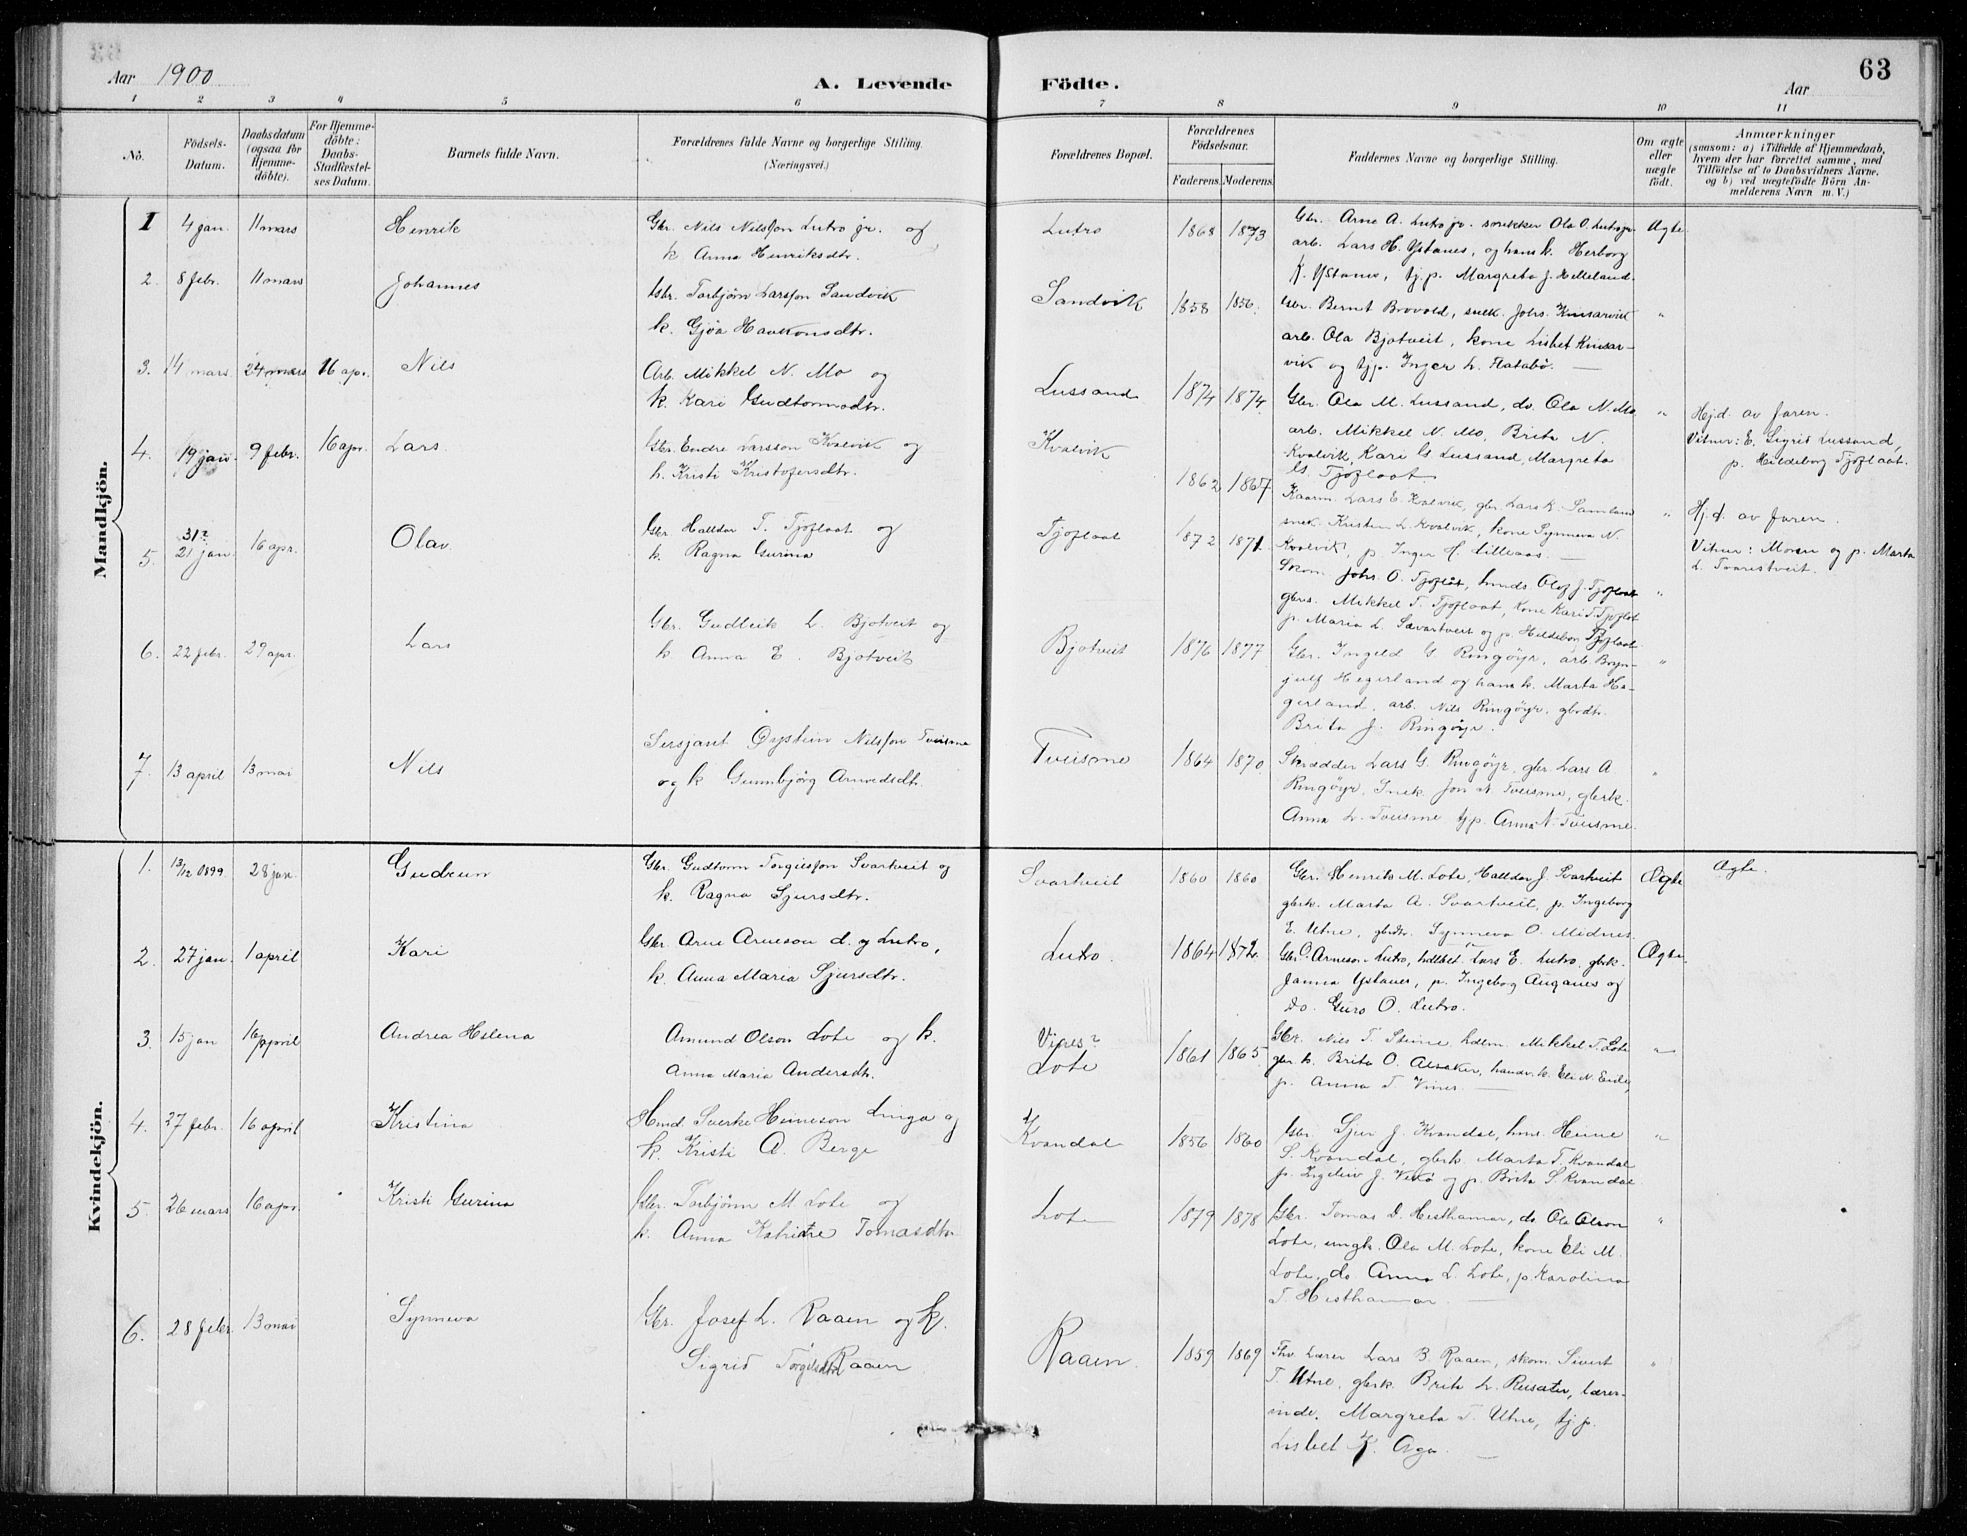 63
Aar 1900
A. Levende Födte.
Aar
1 2 3 4 5 6 7 8 9 10 11
No.
Födsels-Datum.
Daabsdatum (ogsaa for Hjemme-döbte).
For Hjemme-döbte: Daabs-Stadfæstel-ses Datum.
Barnets fulde Navn.
Forældrenes fulde Navne og borgerlige Stilling. (Næringsvei.)
Forældrenes Bopæl.
Forældrenes Födselsaar.
Faderens. Moderens.
Faddernes Navne og borgerlige Stilling.
Om ægte eller uægte født.
Anmærkninger (saasom: a) i Tilfælde af Hjemmedaab, hvem der har forrettet samme, med Tilföielse af to Daabsvidners Navne, og b) ved uægtefödte Börn An-melderens Navn m. V.)
Mandkjön.
1 4 jan. 11 mars Henrik
Gbr. Nils Nilsson Lutro jr. og
k Anna Henriksdtr.
Lutro 1868 1873
Gbr. Arne A. Lutro jr. snekker Ola O. Lutro jr.
arb. Lars H. Ystanes, og hans k. Herborg
K. Ystanes, tj.p. Margreta J. Helleland.
Ægte
2. 8 febr. 11 mars Johannes
Gbr. Torbjørn Larsson Sandvik
k. Gjøa Haakonsdtr.
Sandvik 1858 1856.
Gbr. Bernt Brovold, snek. Johs. Kinsarvik
arb. Ola Bjotveit, kone Lisbet Kinsar-
vik og tjp. Inger L. Flatabø.
"
3. 14 mars 24 mars 16 apr. Nils
Arb. Mikkel N. Mo og
k. Kari Gudtormsdtr.
Lussand 1874 1874
Gbr. Ola M. Lussand, do. Ola N. Mo
arb. Mikkel N. Mo, Brita N.
Kvalvik, Kari G Lussand, Margreta
G. Tjoflaat.
"
Hj.d. av faren.
Vitner: E. Sigrid Lussand,
p. Hildeborg Tjoflaat.
4. 19 jan. 9 febr. 16 apr. Lars
Gbr. Endre Larsson Kvalvik og
h. Kristi Kristofersdtr.
Kvalvik 1862 1867
Kaarm. Lars E. Kvalvik, gbr. Lars L. Samland
snek. Kristen L. Kvalvik, kone Synneva N.
Kvalvik, p. Inger H. Lilleaas.
"
Hj.d. av faren.
Vitner: Moren og p. Marta
L. Tvarestveit.
5. 31? 21 jan 16 apr. Olav
Gbr. Halldor T. Tjoflaat og
k. Ragna Gurina
Tjoflaat 1872 1871.
Skom. Johs. O. Tjoflåt, hmds. Olof J. Tjoflaat
gbrs. Mikkel T. Tjoflaat, Kone Kari T. Tjoflåt
p. Maria L. Sævartveit og p. Hildebor Tjoflaat.
"
6. 22 febr. 29 apr. Lars
Gbr. Gudleik L. Bjotveit og
k Anna E. Bjotveit
Bjotveit 1876 1877
Gbr. Ingeld G. Ringøyr, arb. Bryn-
julf Hegerland og hans k. Marta He-
gerland, arb. Nils Ringøyr, gbrdtr.
Brita J. Ringøyr.
"
7. 13 april 13 mai Nils
Sersjant Øystein Nilsson Tveisme
og k Gunnbjørg Arnvedsdtr.
Tveisme 1864 1870
Skrædder Lars G. Ringøyr, gbr. Lars A
Ringøyr, Snek. Jon N Tveisme, gbrk.
Anna L. Tveisme tjp. Anna N. Tveisme.
"
Kvindekjön.
1. 13/12 1899. 28 jan. Gudrun
Gbr. Gudtorm Torgilsson Svartveit og
k. Ragna Sjursdtr.
Svartveit 1860 1860
Gbr. Henrik M. Lote, Halldor J. Svartveit
gbrk. Marta A. Svartveit, p. Ingeborg
E. Utne, gbrdtr. Synneva O. Midnes.
Ægte
Ægte.
2. 27 jan. 1 april Kari
Gbr. Arne Arneson d. y Lutro,
k. Anna Maria Sjursdtr.
Lutro. 1864 1872.
Gbr. O. Arneson Lutro, Lars E. Lutro. gbrk.
Janna Ystanes, p. Ingeborg Auganes og
do. Guro O. Lutro.
Ægte.
3. 15 jan 16 april Andrea Helena
Amund Olson Lote og k.
Anna Maria Andersdtr.
Vines?
Lote 1861 1865
Gbr. Nils T. Steine, hdlm. Mikkel T. Lote
gbr k. Brita O. Alsaker, handv. k. Eli N.
p. Anna T. Vines
"
4. 27 febr. 16 april Kristina
Hmd. Sverke Heineson Linga og
k. Kristi O. Berge
Kvandal 1856 1860
Gbr. Sjur J. Kvandal, hmd. Heine
S. Kvandal, gbrk. Marta T. Kvandal
p. Ingeleiv J. Vikø og p. Brita S. Kvandal
"
5. 26 mars 16 apr. Kristi Gurina
Gbr. Torbjørn M Lote og
k. Anna Katrine Tomasdtr
Lote 1879 1878
Gbr. Tomas D. Hesthamar, do Ola Olson
Lote, ungk. Ola M. Lote, kone Eli M.
Lote, do Anna L. Lote, p. Karolina
T. Hesthamar
"
6. 28 febr. 13 mai Synneva
Gbr. Josef L. Raaen og k.
Sigrid Torgilsdtr Raaen
Raaen. 1859 1869
Fhv. Lærer Lars B. Raaen, skom. Sivert
T. Utne, gbrk. Brita L. Reisæter, lærer-
inde. Margreta T. Utne, tjp.
Lisbet K. Aga.
"